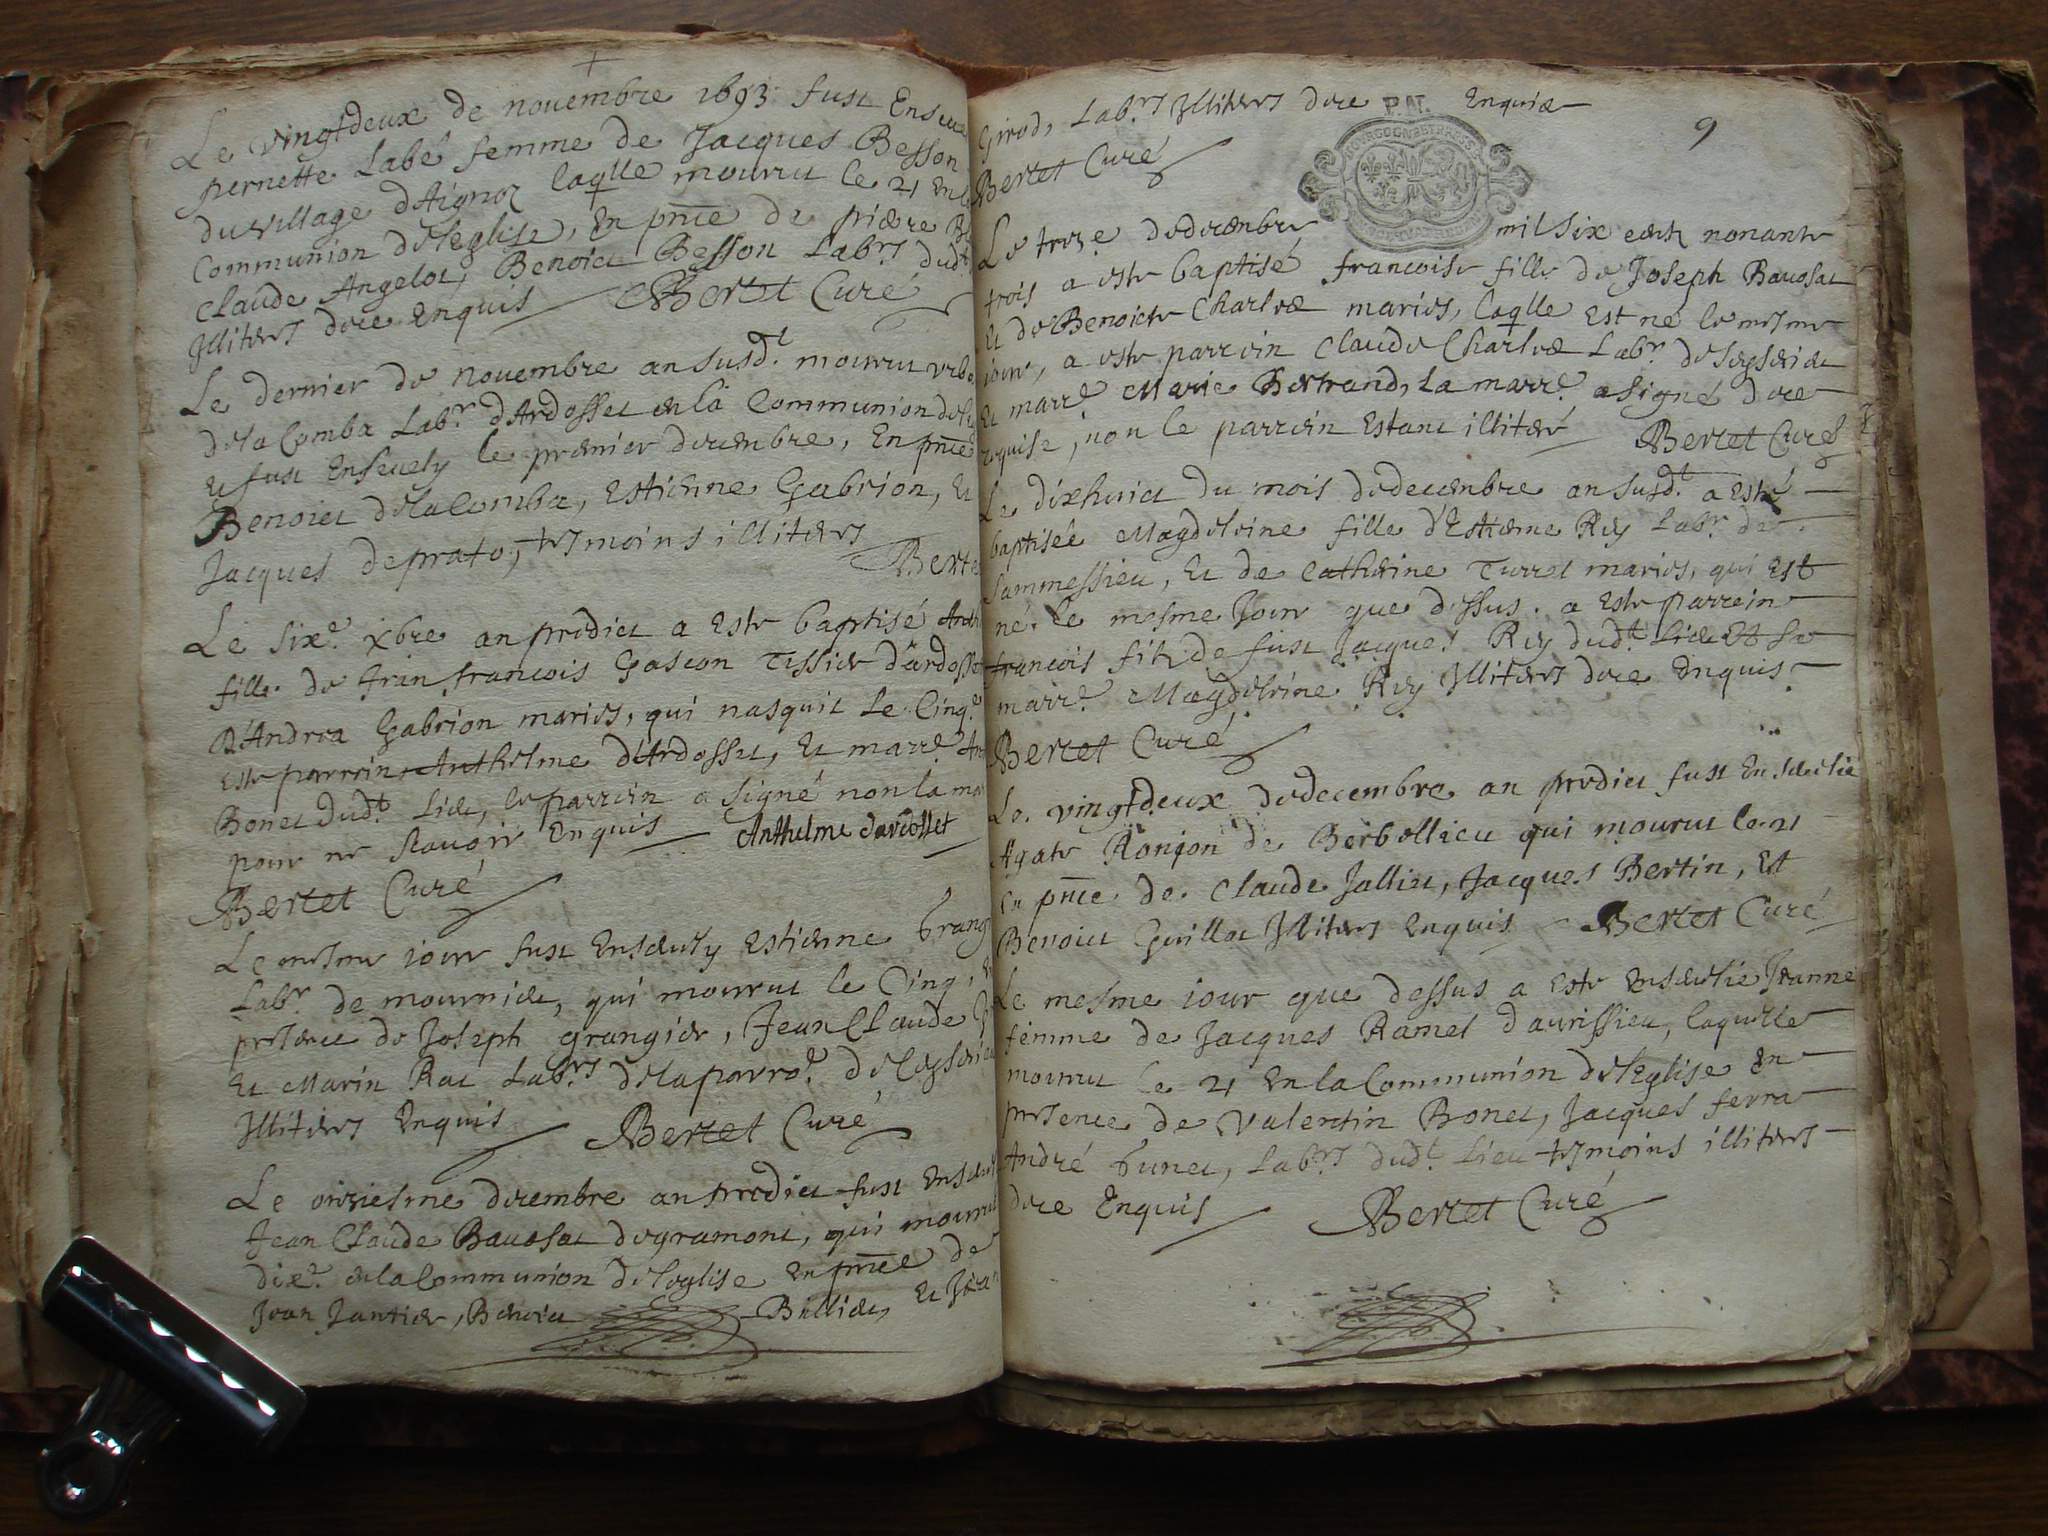 Le vingtdeux de novembre 1693 fust Enseve
pernette Labé femme de Jacques Besson
du village d'Aignoz laqlle mourut le 21 en l
Communion de l'eglise, En pnce de piere
Claude Angelot, Benoict Besson Labrs dudt
Illiters de ce Enquis Bertet Curé
Le dernier de novembre an susdt mourut
de la Comba Labr d'Ardosset en la Communion de l
et fust Ensevely le premier decembre, En pnce
Benoict de la Comba, Estienne Gabrion, et
Jacques de prato, tesmoins illiters
Berte
Le sixe xbre an predict a este baptisé Anth
fille de francois Gascon Tissier d'ardosset
d'Andrea Gabrion mariés, qui nasquit le Cinqe
este parrein Anthelme d'Ardosset, et marre An
Bonet dudt Lieu, le parrein a signé non la ma
pour ne scavoir Enquis Anthelme dardosset
Bertet Curé
Le mesme iour fust Ensevely Estienne brang
Labr de mournieu, qui mourut le Cinq,
presence de Joseph grangier, Jean Claude
et Marin Rat Labrs de la parroe de Ceyserieu
Illiters Enquis Bertet Curé
Le onziesme decembre an predict fust Ensevely
Jean Claude Bavosat de gramont, qui mourut
dixe en la Communion de l'eglise en pnce de
Jean Jantier, Benoict Billiet, et Jean
P.N.
9
Girod, Labrs Illiters de ce Enquis
Bertet Curé
Le treze de decembre mil six cents nonante
trois a este baptisé francoise fille de Joseph Bavosat
et de Benoicte Charlet mariés, laqlle est né le mesme
iour, a este parrein Claude Charlet Labr de Ceyserieu
et marre Marie Bertrand, la marre a signé de ce
requise, non le parrein Estant illiteré Bertet Curé
Le dixhuict du mois de decembre an susdt a esté
baptisée Magdeleine fille d'Estienne Rey Labr de
Sammessieu, et de Catherine Turrel mariés, qui est
né le mesme Jour que dessus. a este parrein
francois filz de fust Jacques Rey dudt Lieu et sa
marre Magdeleine Rey Illiters de ce Enquis
Bertet Curé
Le vingtdeux de decembre an predict fust Ensevelie
Agate Ronjon de Berbollieu qui mourut le 21
En pnce de Claude Jalliet, Jacques Bertin, et
Benoict Guillot Illiters Enquis Bertet Curé
Le mesme iour que dessus a este Ensevelie Jeanne
femme de Jacques Ramel d'avrissieu, laquelle
mourut le 21 en la Communion de l'Eglise en
presence de Valentin Bonet, Jacques ferra
André bunet, Labrs dudt Lieu tesmoins illiters
de ce Enquis Bertet Curé